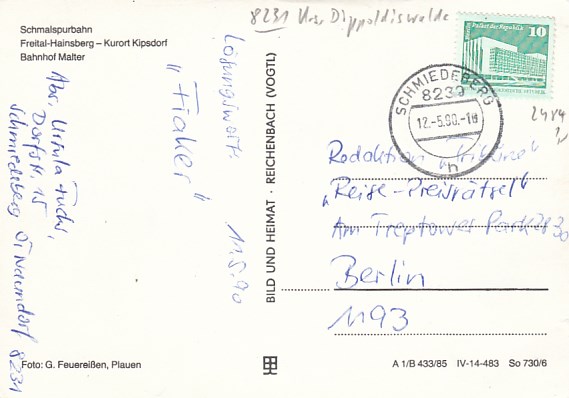 Schmalspurbahn
Freital-Hainsberg – Kurort Kipsdorf
Bahnhof Malter
8231 Dippoldiswalde
Palast der Republik
10
SCHMIEDEBERG
8239
12.-5.90.-18
h
Lösungswort:
"Fiaker"
11.5.90
Abs. Ursula Fuchs,
Dorfstr. 15
Schmiedeberg OT Naundorf
8231
BILD UND HEIMAT · REICHENBACH (VOGTL)
Redaktion „Tribüne"
„Reise-Preisrätsel"
Am Treptower Park 28-30
Berlin
1193
Foto: G. Feuereißen, Plauen
A 1/B 433/85 IV-14-483 So 730/6